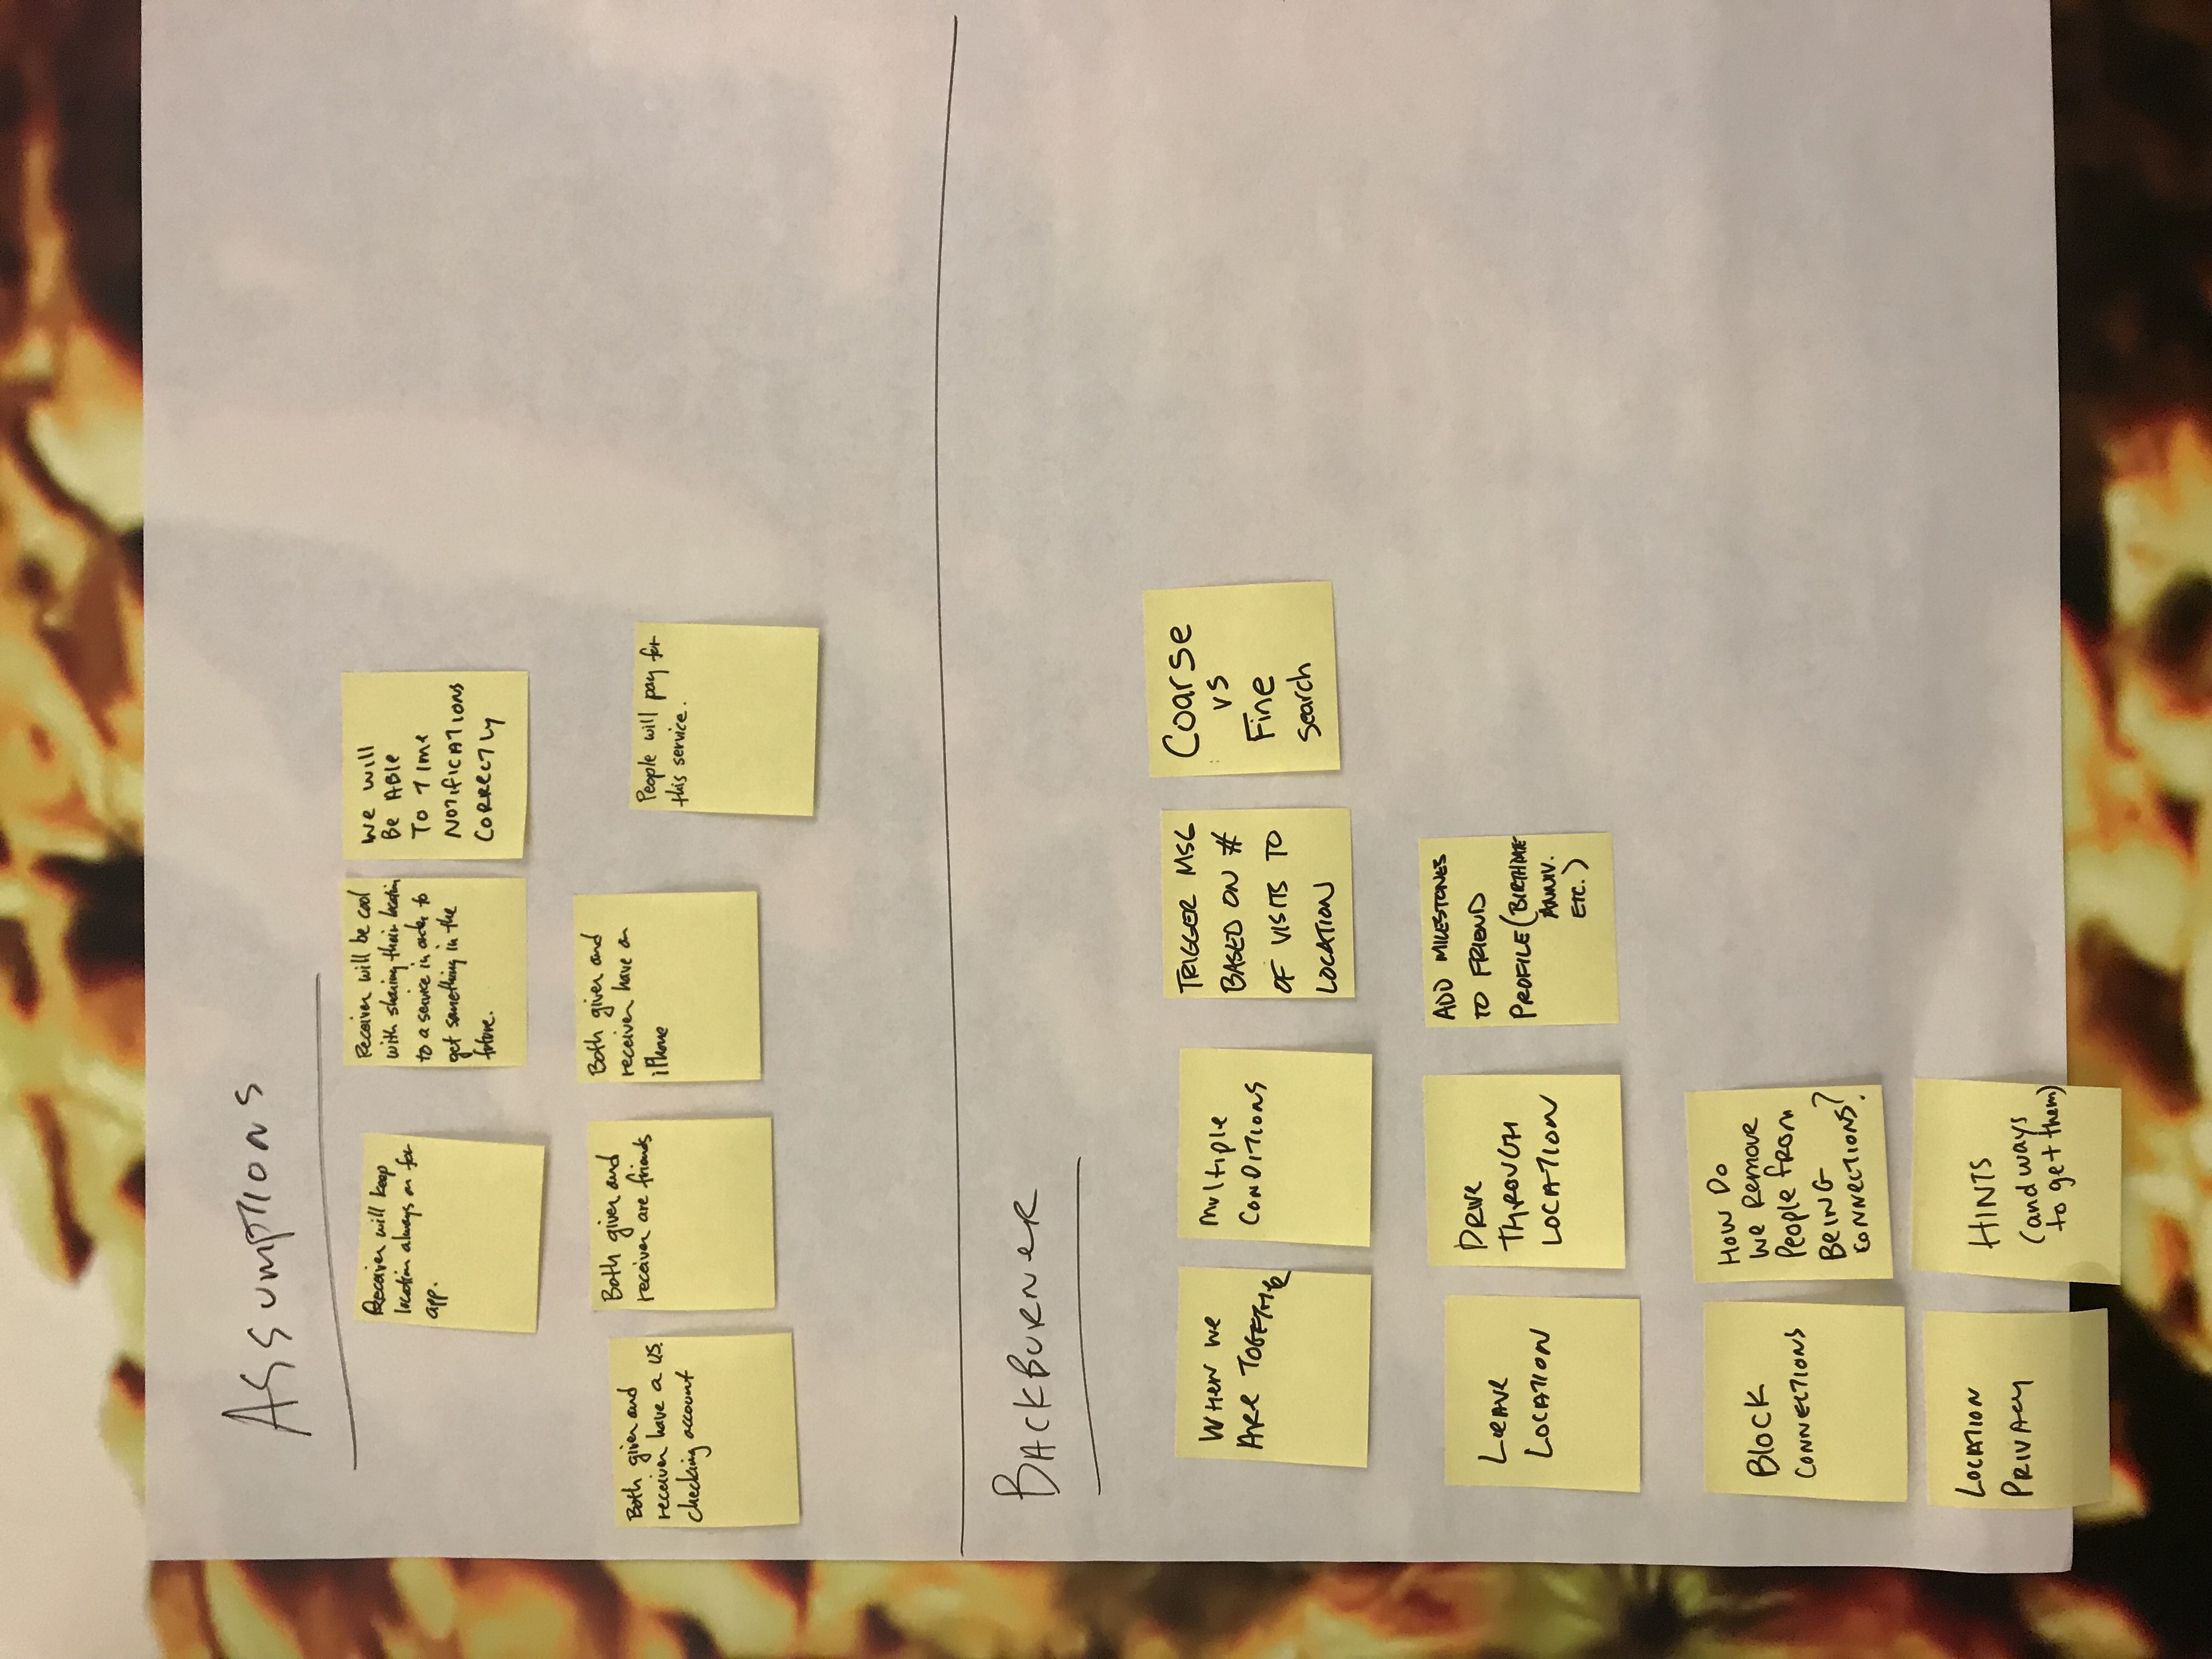 Assumptions
Receiver will keep
location always on for
app.
Receiver will be cool
with sharing their location
to a service in order to
get something in the
future.
We will
Be ABle
To Time
NOTIFICATIONS
CORRECTLY
Both giver and
receiver have a U.S.
checking account
Both giver and
receiver are friends
Both giver and
receiver have an
iPhone
People will pay for
this service.
BACKBURNER
WHEN WE
ARE TOGETHER
Multiple
CONDITIONS
TRIGGER MSG
BASED ON #
OF VISITS TO
LOCATION
Coarse
vs
Fine
search
LEAVE
LOCATION
DRIVE
THROUGH
LOCATION
ADD MILESTONES
TO FRIEND
PROFILE (BIRTHDATE
ANNIV.
ETC.)
BLOCK
CONNECTIONS
HOW DO
WE REMOVE
People from
BEING
CONNECTIONS?
LOCATION
PRIVACY
HINTS
(and ways
to get them)